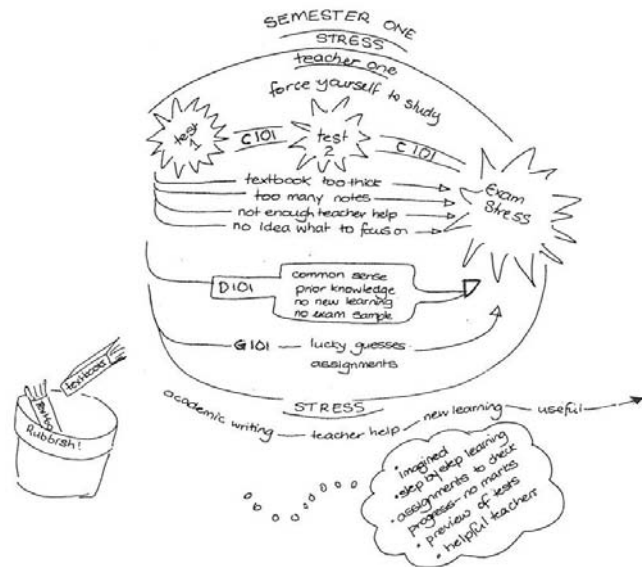 SEMESTER ONE
STRESS
teacher one
force yourself to study
test 1
C101
test 2
C101
Exam Stress
textbook too thick
too many notes
not enough teacher help
no idea what to focus on
D101
common sense
prior knowledge
no new learning
no exam sample
G101 lucky guesses
assignments
STRESS
academic writing teacher help new learning useful
textbooks
Rubbish!
• imagined
• step by step learning
• assignments to check
progress - no marks
• preview of tests
• helpful teachers